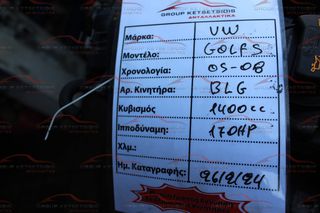 GROUP KETSETSIDIS
ΑΝΤΑΛΛΑΚΤΙΚΑ
Μάρκα: VW
Μοντέλο: GOLF 5
Χρονολογία: 05-08
Αρ. Κινητήρα: BLG
Κυβισμός: 1400cc
Ιπποδύναμη: 170HP
Χλμ.:
Ημ. Καταγραφής: 26/2/24